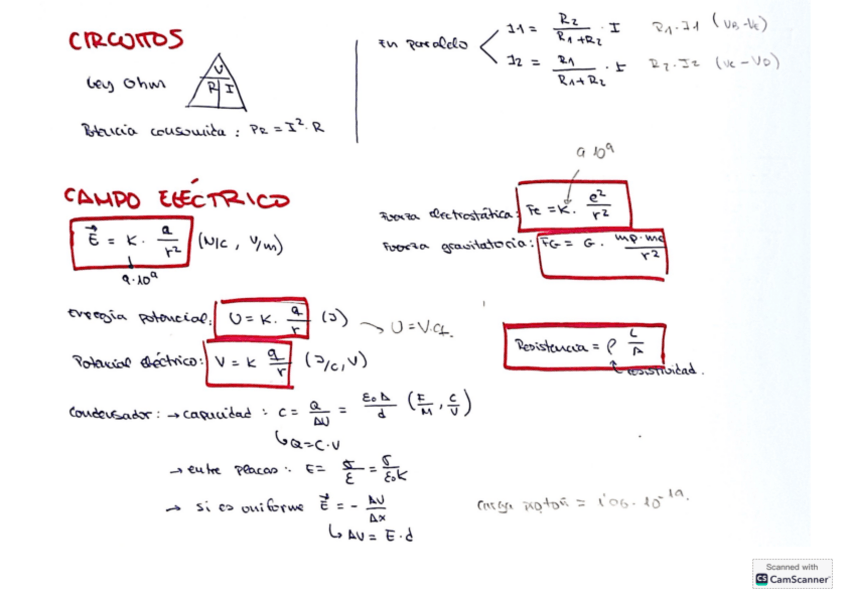 CIRCUITOS
Ley Ohm
V
R I
Potencia consumida : PR = I² · R
En paralelo
I1 = R2 / R1 + R2 · I R1 · I1 (VB - VC)
I2 = R1 / R1 + R2 · I R2 · I2 (VC - VD)
CAMPO ELÉCTRICO
E⃗ = K · q / r² (N/C , V/m)
9 · 10⁹
9 10⁹
Fuerza electrostática: Fe = K · e² / r²
Fuerza gravitatoria: FG = G · mp · me / r²
Energía potencial: U = K · q / r (J) → U = V · q.
Potencial eléctrico: V = K q / r (J/C, V)
Resistencia = ρ L / A
resistividad.
Condensador: → capacidad : C = Q / ΔU = ε0 A / d (F/M , C/V)
↳ Q = C · V
→ entre placas : E = σ / ε = σ / ε0 K
→ si es uniforme E⃗ = - ΔU / Δx
↳ ΔU = E · d
Carga protón = 1'06 · 10⁻¹⁹.
Scanned with
CS CamScanner